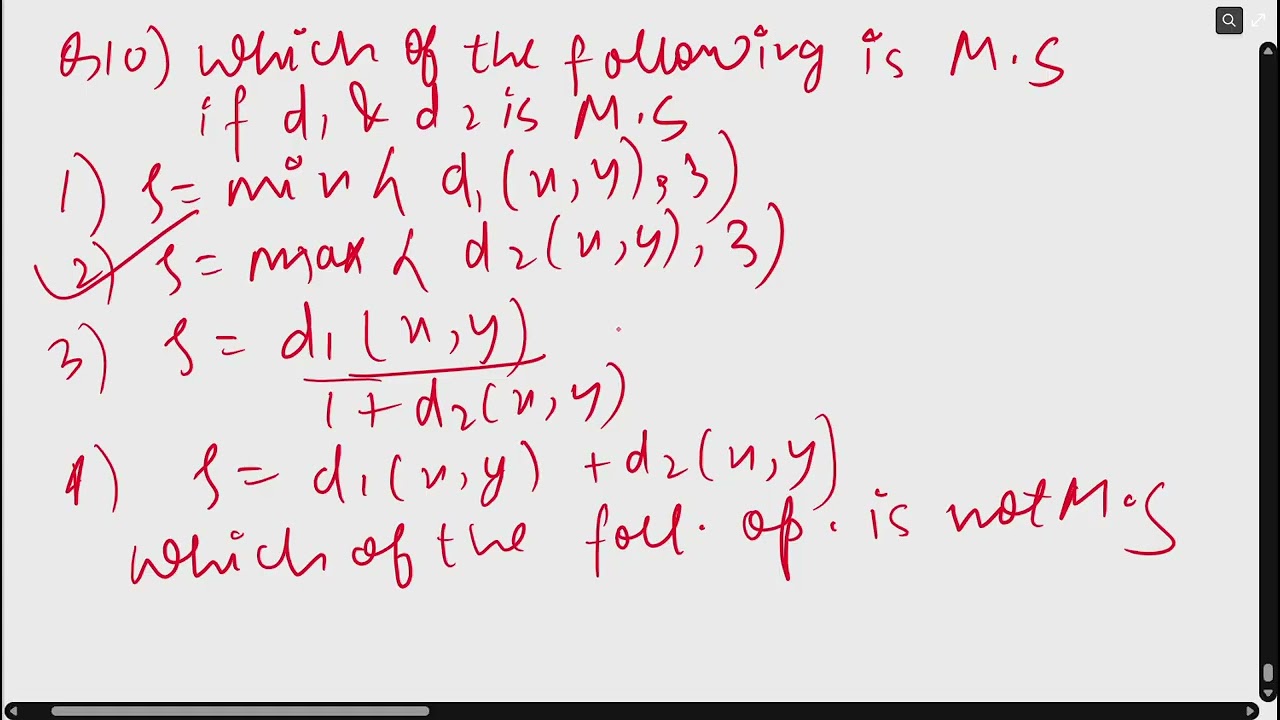 Q10) which of the following is M.S
if d1 & d2 is M.S
1) ρ = min { d1(x,y), 3)
2) ρ = max { d2(x,y), 3)
3) ρ = d1(x,y)
1+d2(x,y)
4) ρ = d1(x,y) + d2(x,y)
which of the foll. op. is not M.S